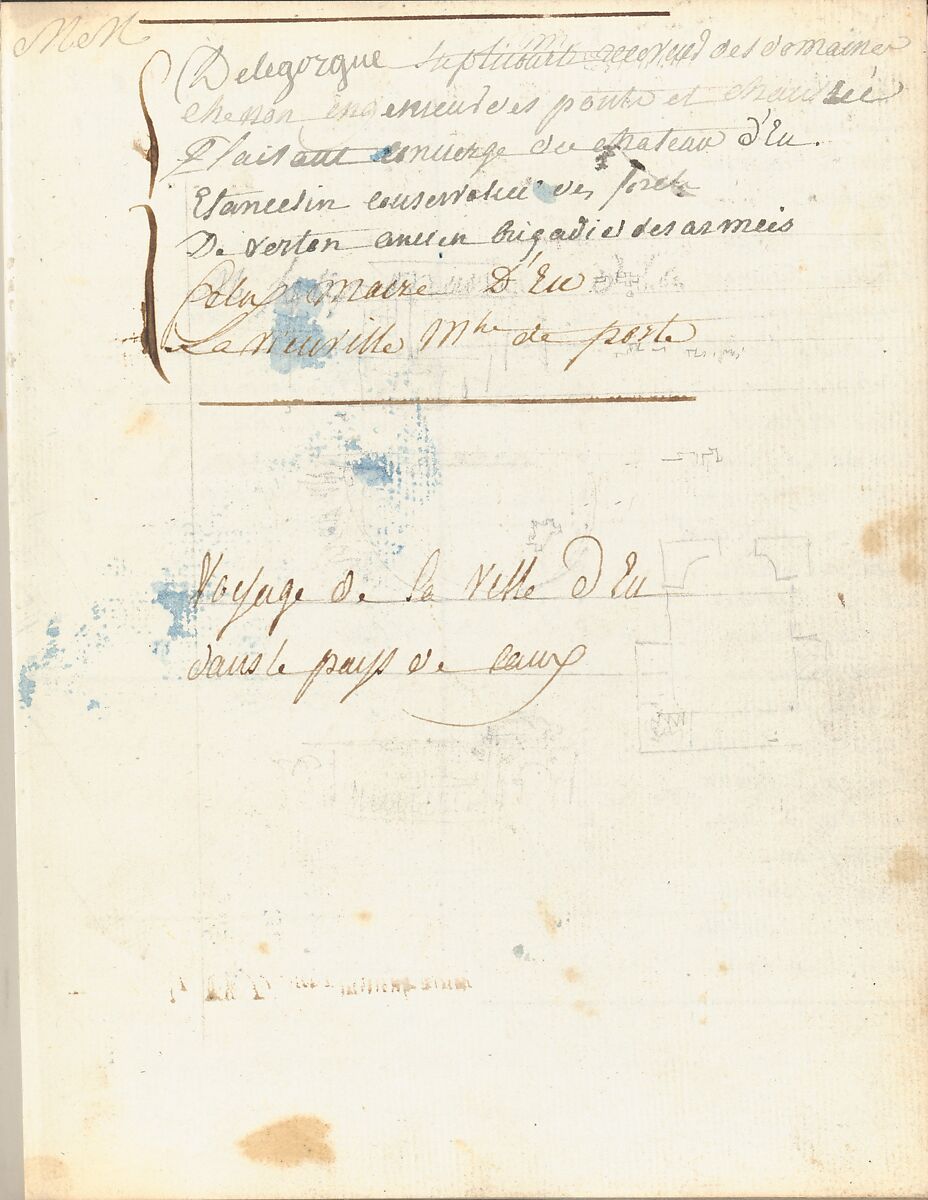 MM
Delegorgue receveur des domaines
chenon ingenieur des ponts et chaussée
Plaisant concierge du chateau d'Eu.
Estancelin conservateur des forets
De verton ancien brigadier des armées
maire D'Eu
La vieuville Mhe de porte
Voyage de la ville d'Eu
dans le pays de caux